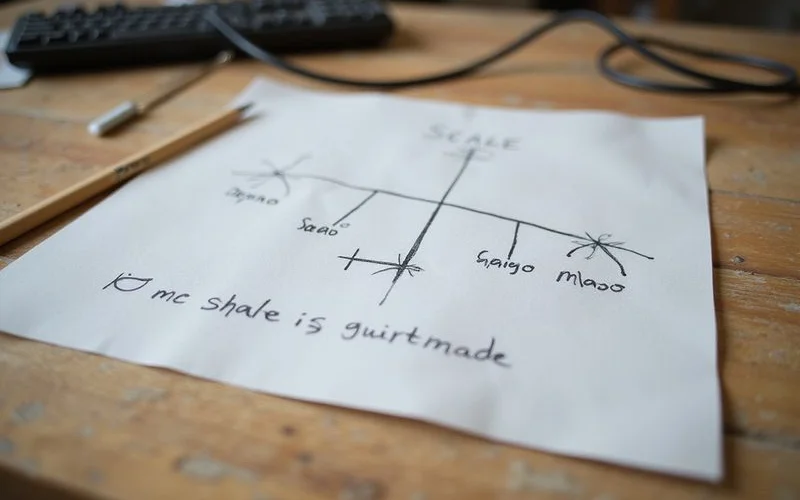 SCALE
Saao°
Gaigo
Mlaoo
mc shale is guirtmade